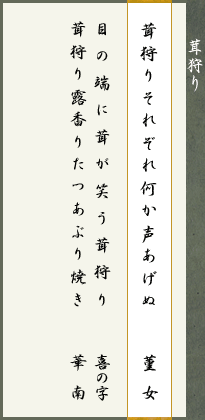 茸狩り
茸狩りそれぞれ何か声あげぬ　菫女
目の端に茸が笑う茸狩り　喜の字
茸狩り露香りたつあぶり焼き　華南